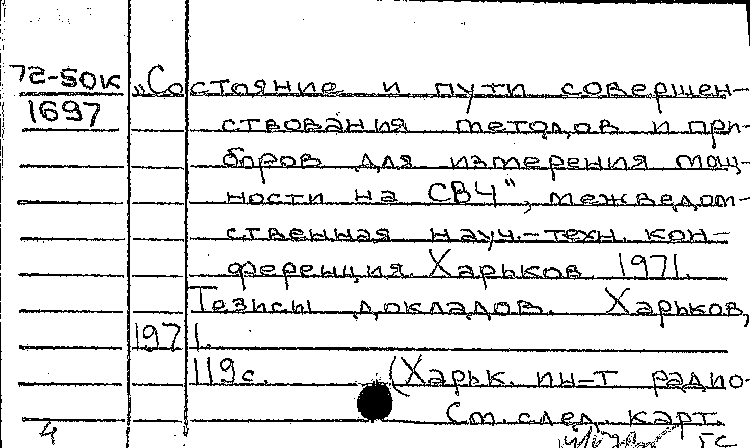 72-50к „Состояние и пути совершен-
1697 ствования методов и при-
боров для измерения мощ-
ности на СВЧ", межведом-
ственная науч.-техн. кон-
ференция. Харьков 1971.
Тезисы докладов. Харьков,
1971.
119с. (Харьк. ин-т радио-
См. след. карт.
4 ГС